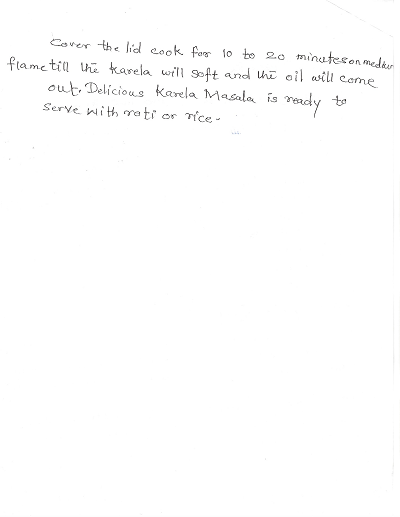 Cover the lid cook for 10 to 20 minutes on medium
flame till the karela will soft and the oil will come
out. Delicious Karela Masala is ready to
serve with roti or rice.